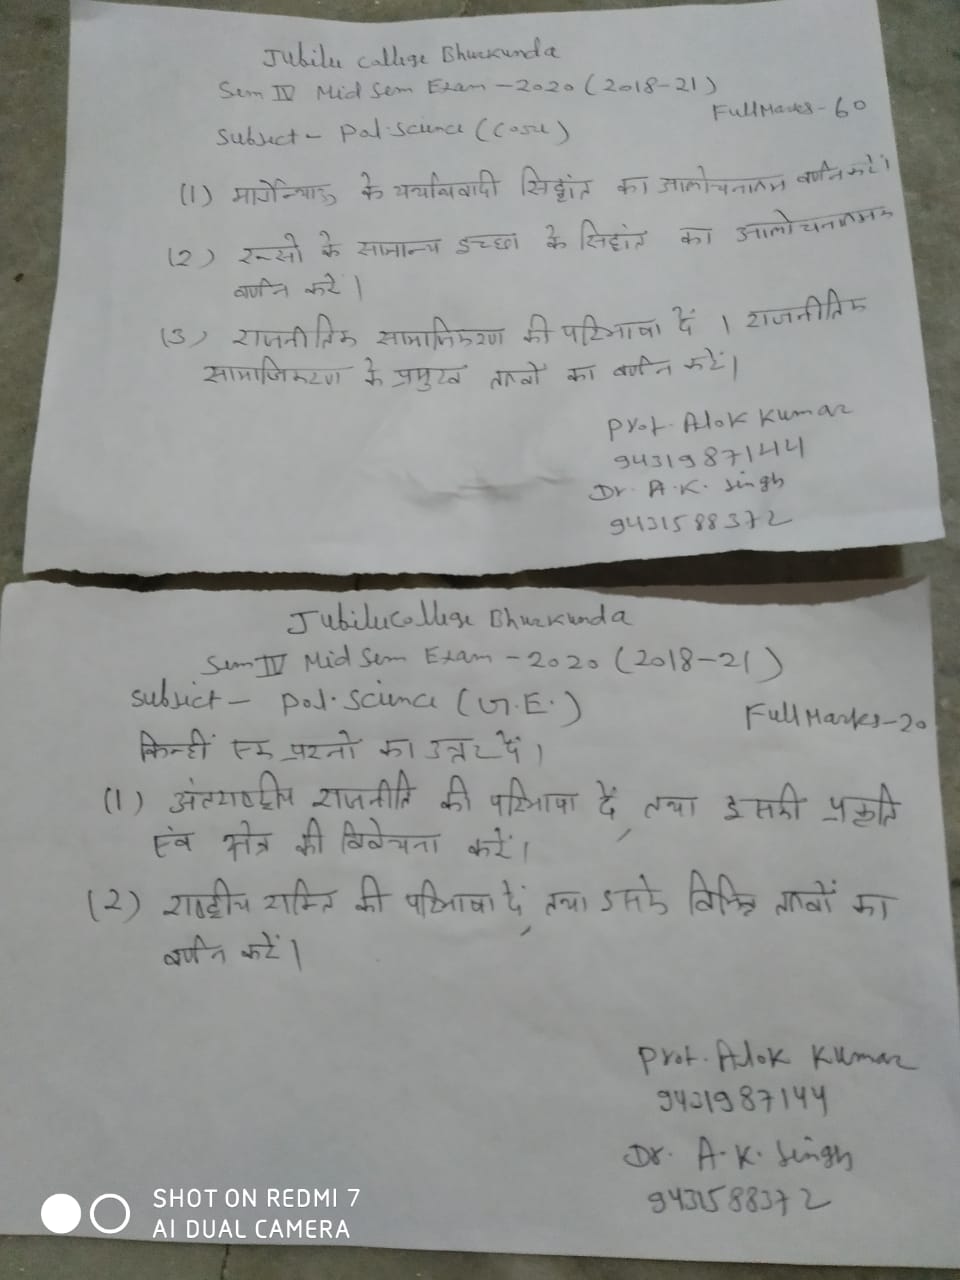 Jubilee College Bhurkunda
Sem IV Mid Sem Exam - 2020 (2018-21)
Full Marks - 60
Subject - Pol. Science (Core)
(1) मार्गेन्थाऊ के यर्थाथवादी सिद्धांत का आलोचनात्मक वर्णन करें।
(2) रूसो के सामान्य इच्छा के सिद्धांत का आलोचनात्मक
वर्णन करें।
(3) राजनीतिक सामाजिकरण की परिभाषा दें। राजनीतिक
सामाजिकरण के प्रमुख तत्वों का वर्णन करें।
Prof. Alok Kumar
9431987144
Dr. A.K. Singh
9431588372
Jubilee College Bhurkunda
Sem IV Mid Sem Exam - 2020 (2018-21)
Subject - Pol. Science (G.E.)
Full Marks - 20
किन्हीं एक प्रश्नो का उत्तर दें।
(1) अंतराष्ट्रीय राजनीति की परिभाषा दें, तथा इसकी प्रकृति
एंव क्षेत्र की विवेचना करें।
(2) राष्ट्रीय शक्ति की परिभाषा दें, तथा इसके विभिन्न तत्वों का
वर्णन करें।
Prof. Alok Kumar
9431987144
Dr. A.K. Singh
9431588372
SHOT ON REDMI 7
AI DUAL CAMERA